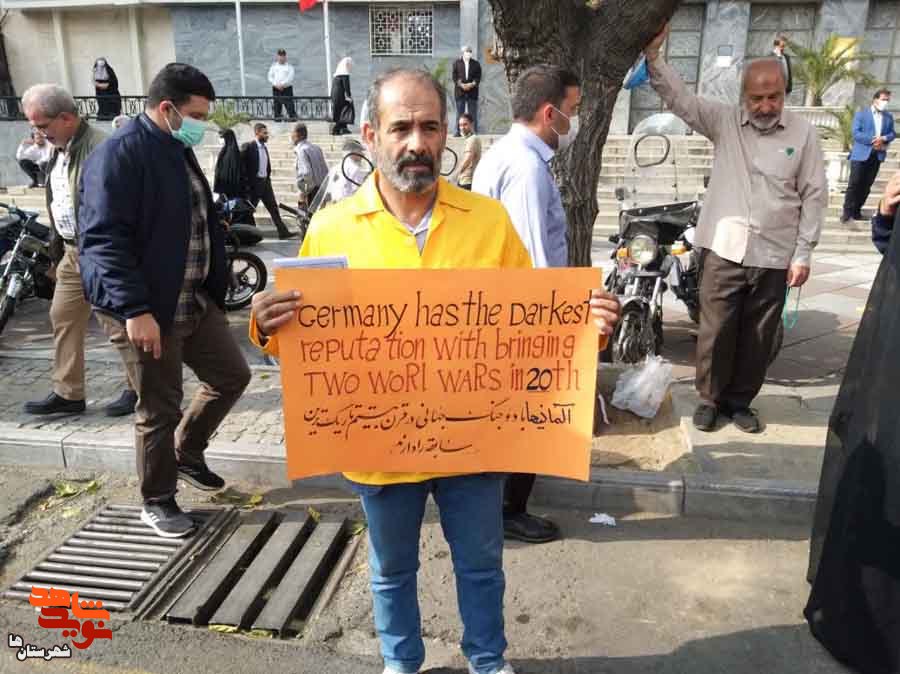 Germany has the Darkest
reputation with bringing
TWO WORl WARS in 20th
آلمانیها با دو جنگ جهانی در قرن بیستم تاریکترین
سابقه را دارند
نوید شاهد
شهرستان ها